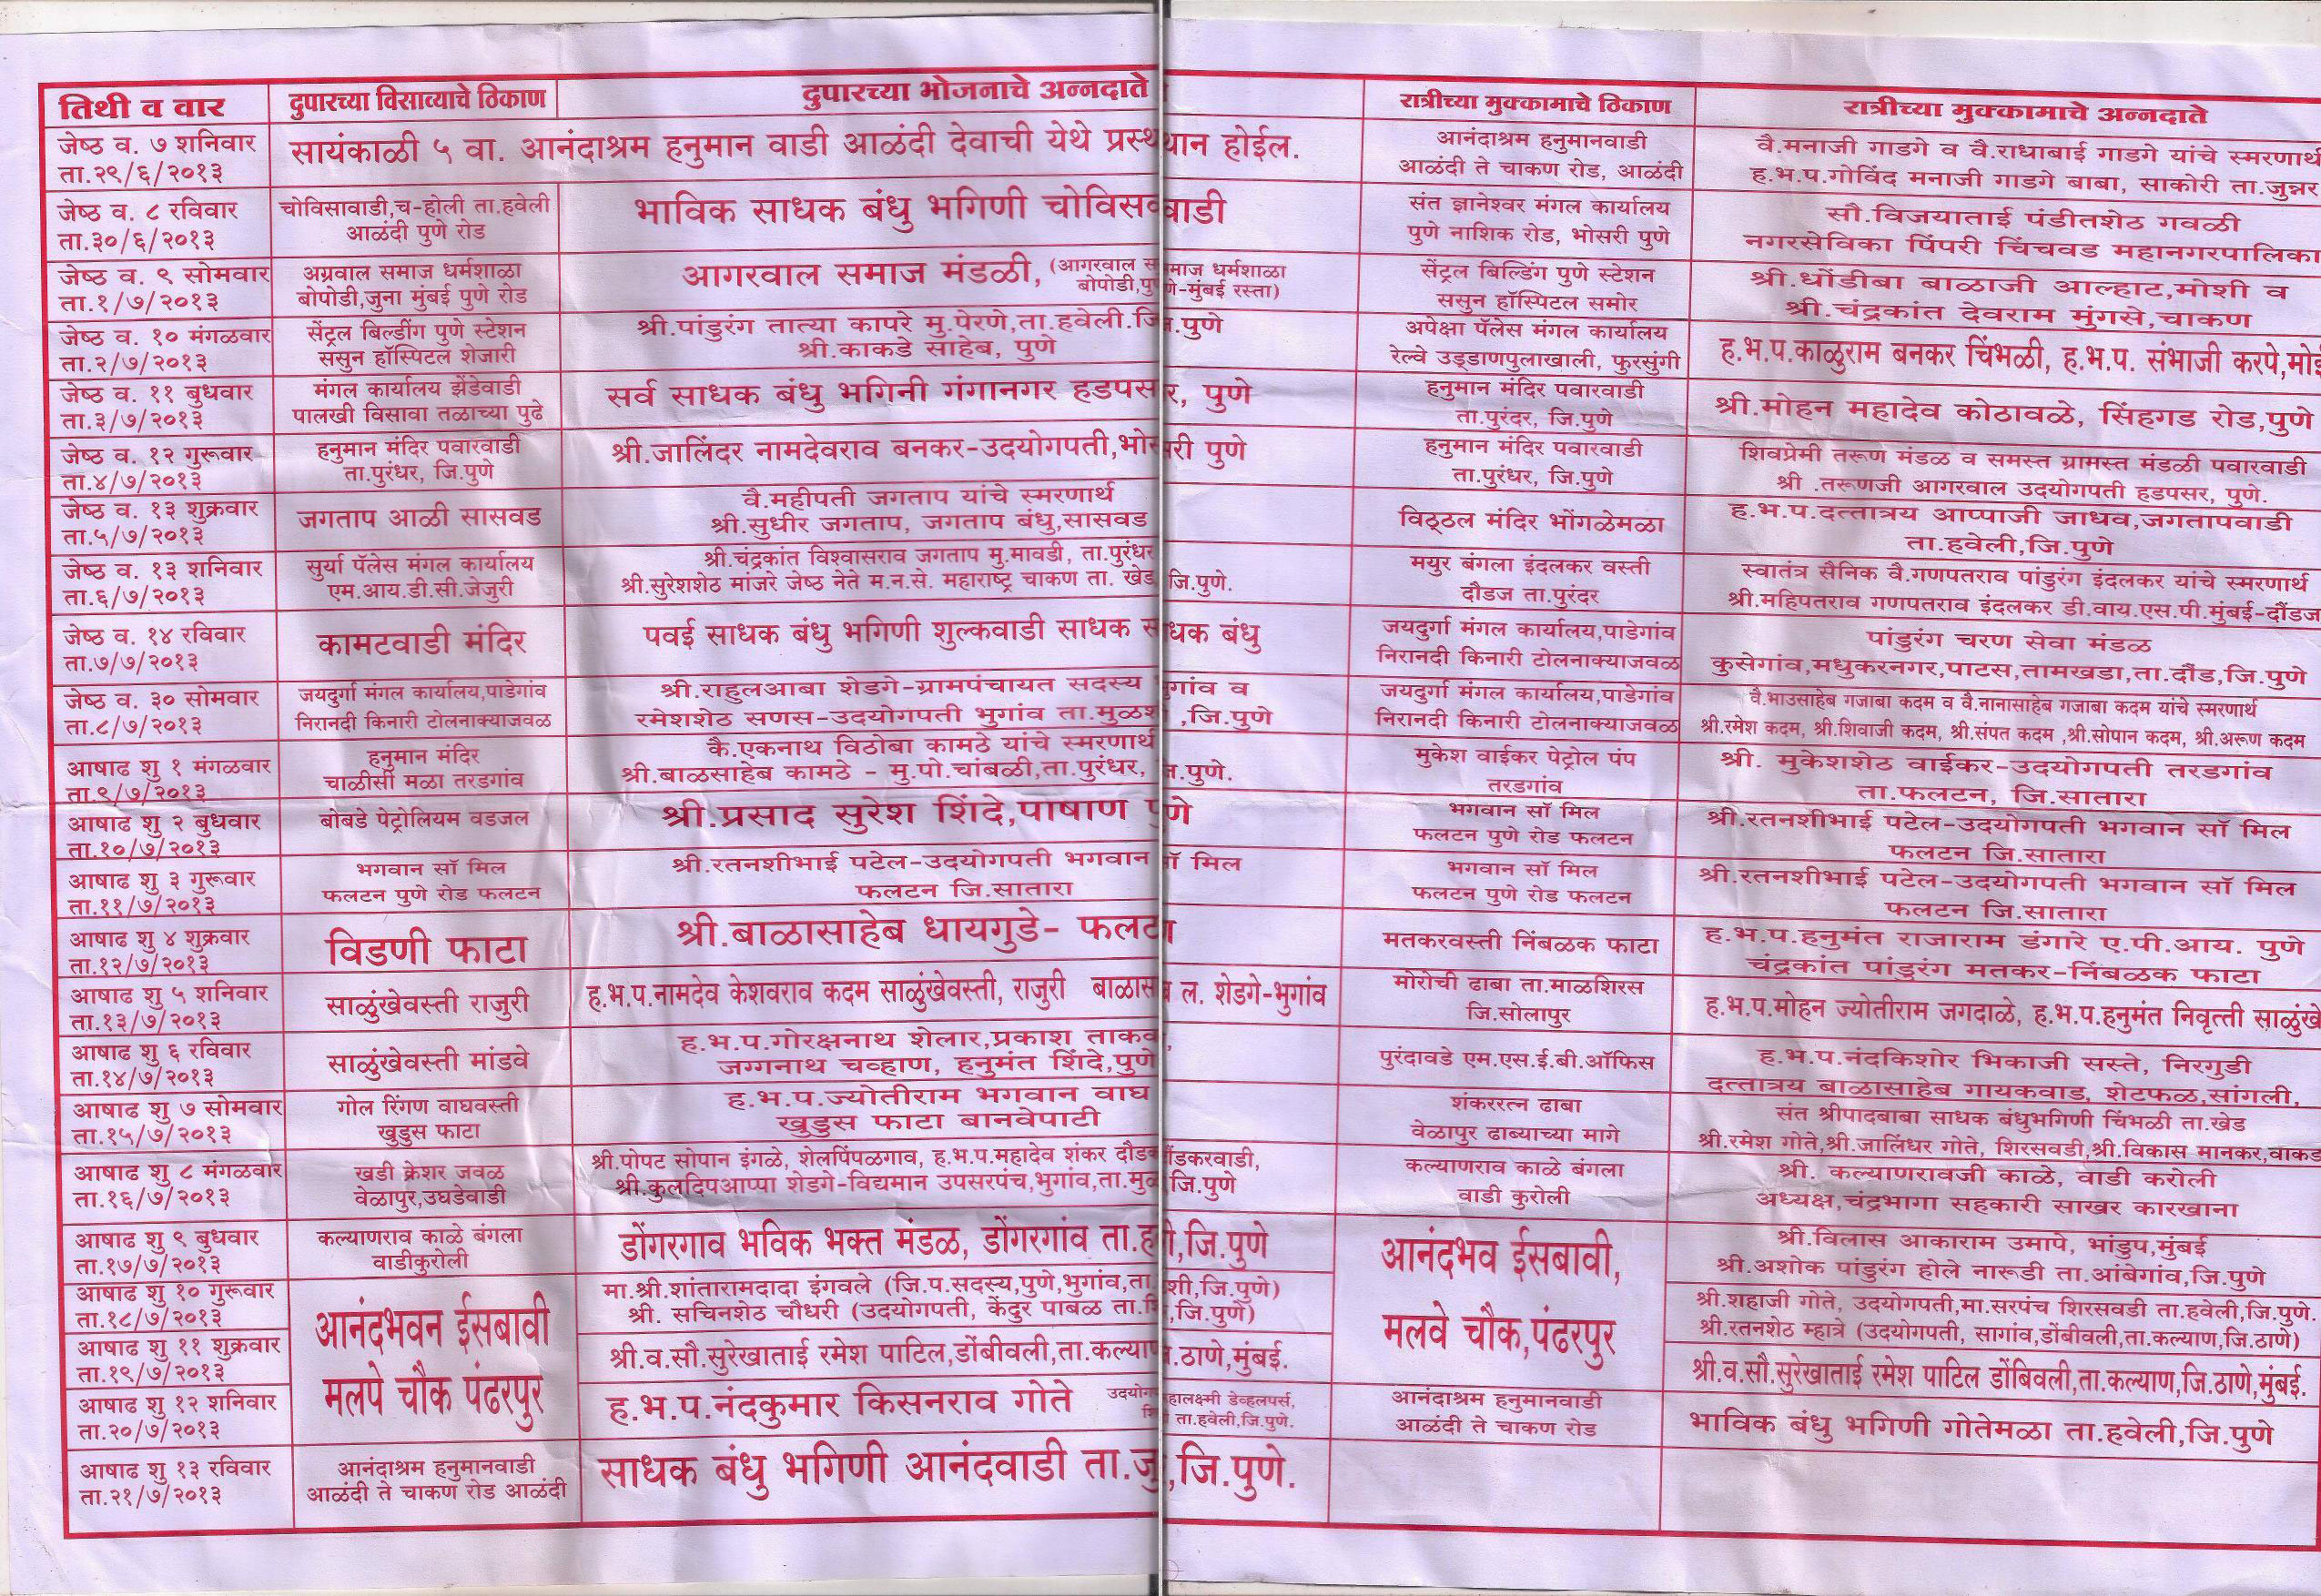 तिथी व वार
दुपारच्या विसाव्याचे ठिकाण
दुपारच्या भोजनाचे अन्नदाते
रात्रीच्या मुक्कामाचे ठिकाण
रात्रीच्या मुक्कामाचे अन्नदाते
जेष्ठ व. ७ शनिवार
ता.२९/६/२०१३
सायंकाळी ५ वा. आनंदाश्रम हनुमान वाडी आळंदी देवाची येथे प्रस्थान होईल.
आनंदाश्रम हनुमानवाडी
आळंदी ते चाकण रोड, आळंदी
वै.मनाजी गाडगे व वै.राधाबाई गाडगे यांचे स्मरणार्थ
ह.भ.प.गोविंद मनाजी गाडगे बाबा, साकोरी ता.जुन्नर
जेष्ठ व. ८ रविवार
ता.३०/६/२०१३
चोविसावाडी,च-होली ता.हवेली
आळंदी पुणे रोड
भाविक साधक बंधु भगिणी चोविसवाडी
संत ज्ञानेश्वर मंगल कार्यालय
पुणे नाशिक रोड, भोसरी पुणे
सौ.विजयाताई पंडीतशेठ गवळी
नगरसेविका पिंपरी चिंचवड महानगरपालिका
जेष्ठ व. ९ सोमवार
ता.१/७/२०१३
अग्रवाल समाज धर्मशाळा
बोपोडी,जुना मुंबई पुणे रोड
आगरवाल समाज मंडळी, (आगरवाल समाज धर्मशाळा
बोपोडी,पुणे-मुंबई रस्ता)
सेंट्रल बिल्डिंग पुणे स्टेशन
ससुन हॉस्पिटल समोर
श्री.धोंडीबा बाळाजी आल्हाट,मोशी व
श्री.चंद्रकांत देवराम मुंगसे,चाकण
जेष्ठ व. १० मंगळवार
ता.२/७/२०१३
सेंट्रल बिल्डींग पुणे स्टेशन
ससुन हॉस्पिटल शेजारी
श्री.पांडुरंग तात्या कापरे मु.पेरणे,ता.हवेली.जि.पुणे
श्री.काकडे साहेब, पुणे
अपेक्षा पॅलेस मंगल कार्यालय
रेल्वे उड्डाणपुलाखाली, फुरसुंगी
ह.भ.प.काळुराम बनकर चिंभळी, ह.भ.प. संभाजी करपे,मोई
जेष्ठ व. ११ बुधवार
ता.३/७/२०१३
मंगल कार्यालय झेंडेवाडी
पालखी विसावा तळाच्या पुढे
सर्व साधक बंधु भगिनी गंगानगर हडपसर, पुणे
हनुमान मंदिर पवारवाडी
ता.पुरंदर, जि.पुणे
श्री.मोहन महादेव कोठावळे, सिंहगड रोड,पुणे
जेष्ठ व. १२ गुरूवार
ता.४/७/२०१३
हनुमान मंदिर पवारवाडी
ता.पुरंधर, जि.पुणे
श्री.जालिंदर नामदेवराव बनकर-उदयोगपती,भोसरी पुणे
हनुमान मंदिर पवारवाडी
ता.पुरंधर, जि.पुणे
शिवप्रेमी तरूण मंडळ व समस्त ग्रामस्त मंडळी पवारवाडी
श्री .तरूणजी आगरवाल उदयोगपती हडपसर, पुणे.
जेष्ठ व. १३ शुक्रवार
ता.५/७/२०१३
जगताप आळी सासवड
वै.महीपती जगताप यांचे स्मरणार्थ
श्री.सुधीर जगताप, जगताप बंधु,सासवड
विठ्ठल मंदिर भोंगळेमळा
ह.भ.प.दत्तात्रय आप्पाजी जाधव,जगतापवाडी
ता.हवेली,जि.पुणे
जेष्ठ व. १३ शनिवार
ता.६/७/२०१३
सुर्या पॅलेस मंगल कार्यालय
एम.आय.डी.सी.जेजुरी
श्री.चंद्रकांत विश्वासराव जगताप मु.मावडी, ता.पुरंधर
श्री.सुरेशशेठ मांजरे जेष्ठ नेते म.न.से. महाराष्ट्र चाकण ता. खेड जि.पुणे.
मयुर बंगला इंदलकर वस्ती
दौडज ता.पुरंदर
स्वातंत्र सैनिक वै.गणपतराव पांडुरंग इंदलकर यांचे स्मरणार्थ
श्री.महिपतराव गणपतराव इंदलकर डी.वाय.एस.पी.मुंबई-दौंडज
जेष्ठ व. १४ रविवार
ता.७/७/२०१३
कामटवाडी मंदिर
पवई साधक बंधु भगिणी शुल्कवाडी साधक साधक बंधु
जयदुर्गा मंगल कार्यालय,पाडेगांव
निरानदी किनारी टोलनाक्याजवळ
पांडुरंग चरण सेवा मंडळ
कुसेगांव,मधुकरनगर,पाटस,तामखडा,ता.दौंड,जि.पुणे
जेष्ठ व. ३० सोमवार
ता.८/७/२०१३
जयदुर्गा मंगल कार्यालय,पाडेगांव
निरानदी किनारी टोलनाक्याजवळ
श्री.राहुलआबा शेडगे-ग्रामपंचायत सदस्य भुगांव व
रमेशशेठ सणस-उदयोगपती भुगांव ता.मुळशी ,जि.पुणे
जयदुर्गा मंगल कार्यालय,पाडेगांव
निरानदी किनारी टोलनाक्याजवळ
वै.भाउसाहेब गजाबा कदम व वै.नानासाहेब गजाबा कदम यांचे स्मरणार्थ
श्री.रमेश कदम, श्री.शिवाजी कदम, श्री.संपत कदम ,श्री.सोपान कदम, श्री.अरूण कदम
आषाढ शु १ मंगळवार
ता.९/७/२०१३
हनुमान मंदिर
चाळीसी मळा तरडगांव
कै.एकनाथ विठोबा कामठे यांचे स्मरणार्थ
श्री.बाळसाहेब कामठे - मु.पो.चांबळी,ता.पुरंधर, जि.पुणे.
मुकेश वाईकर पेट्रोल पंप
तरडगांव
श्री. मुकेशशेठ वाईकर-उदयोगपती तरडगांव
ता.फलटन, जि.सातारा
आषाढ शु २ बुधवार
ता.१०/७/२०१३
बोबडे पेट्रोलियम वडजल
श्री.प्रसाद सुरेश शिंदे,पाषाण पुणे
भगवान सॉ मिल
फलटन पुणे रोड फलटन
श्री.रतनशीभाई पटेल-उदयोगपती भगवान सॉ मिल
फलटन जि.सातारा
आषाढ शु ३ गुरूवार
ता.११/७/२०१३
भगवान सॉ मिल
फलटन पुणे रोड फलटन
श्री.रतनशीभाई पटेल-उदयोगपती भगवान सॉ मिल
फलटन जि.सातारा
भगवान सॉ मिल
फलटन पुणे रोड फलटन
श्री.रतनशीभाई पटेल-उदयोगपती भगवान सॉ मिल
फलटन जि.सातारा
आषाढ शु ४ शुक्रवार
ता.१२/७/२०१३
विडणी फाटा
श्री.बाळासाहेब धायगुडे- फलटन
मतकरवस्ती निंबळक फाटा
ह.भ.प.हनुमंत राजाराम डंगारे ए.पी.आय. पुणे
चंद्रकांत पांडुरंग मतकर-निंबळक फाटा
आषाढ शु ५ शनिवार
ता.१३/७/२०१३
साळुंखेवस्ती राजुरी
ह.भ.प.नामदेव केशवराव कदम साळुंखेवस्ती, राजुरी बाळासाहेब ल. शेडगे-भुगांव
मोरोची ढाबा ता.माळशिरस
जि.सोलापुर
ह.भ.प.मोहन ज्योतीराम जगदाळे, ह.भ.प.हनुमंत निवृत्ती साळुंखे
आषाढ शु ६ रविवार
ता.१४/७/२०१३
साळुंखेवस्ती मांडवे
ह.भ.प.गोरक्षनाथ शेलार,प्रकाश ताकव
जग्गनाथ चव्हाण, हनुमंत शिंदे,पुणे
पुरंदावडे एम.एस.ई.बी.ऑफिस
ह.भ.प.नंदकिशोर भिकाजी सस्ते, निरगुडी
दत्तात्रय बाळासाहेब गायकवाड, शेटफळ,सांगली,
आषाढ शु ७ सोमवार
ता.१५/७/२०१३
गोल रिंगण वाघवस्ती
खुडुस फाटा
ह.भ.प.ज्योतीराम भगवान वाघ
खुडुस फाटा बानवेपाटी
शंकररत्न ढाबा
वेळापुर ढाब्याच्या मागे
संत श्रीपादबाबा साधक बंधुभगिणी चिंभळी ता.खेड
श्री.रमेश गोते,श्री.जालिंधर गोते, शिरसवडी,श्री.विकास मानकर,वाकड
आषाढ शु ८ मंगळवार
ता.१६/७/२०१३
खडी क्रेशर जवळ
वेळापुर,उघडेवाडी
श्री.पोपट सोपान इंगळे, शेलपिंपळगाव, ह.भ.प.महादेव शंकर दौंडकर दौंडकरवाडी,
श्री.कुलदिपआप्पा शेडगे-विद्यमान उपसरपंच,भुगांव,ता.मुळ जि.पुणे
कल्याणराव काळे बंगला
वाडी कुरोली
श्री. कल्याणरावजी काळे, वाडी करोली
अध्यक्ष,चंद्रभागा सहकारी साखर कारखाना
आषाढ शु ९ बुधवार
ता.१७/७/२०१३
कल्याणराव काळे बंगला
वाडीकुरोली
डोंगरगाव भविक भक्त मंडळ, डोंगरगांव ता.हवेली,जि.पुणे
आनंदभव ईसबावी,
मलवे चौक,पंढरपुर
श्री.विलास आकाराम उमापे, भांडुप,मुंबई
श्री.अशोक पांडुरंग होले नारूडी ता.आंबेगांव,जि.पुणे
आषाढ शु १० गुरूवार
ता.१८/७/२०१३
आनंदभवन ईसबावी
मलपे चौक पंढरपुर
मा.श्री.शांतारामदादा इंगवले (जि.प.सदस्य,पुणे,भुगांव,ता.मुळशी,जि.पुणे)
श्री. सचिनशेठ चौधरी (उदयोगपती, केंदुर पाबळ ता.शि,जि.पुणे)
श्री.शहाजी गोते, उदयोगपती,मा.सरपंच शिरसवडी ता.हवेली,जि.पुणे.
श्री.रतनशेठ म्हात्रे (उदयोगपती, सागांव,डोंबीवली,ता.कल्याण,जि.ठाणे)
आषाढ शु ११ शुक्रवार
ता.१९/७/२०१३
श्री.व.सौ.सुरेखाताई रमेश पाटिल,डोंबीवली,ता.कल्याण.ठाणे,मुंबई.
श्री.व.सौ.सुरेखाताई रमेश पाटिल डोंबिवली,ता.कल्याण,जि.ठाणे,मुंबई.
आषाढ शु १२ शनिवार
ता.२०/७/२०१३
ह.भ.प.नंदकुमार किसनराव गोते
महालक्ष्मी डेव्हलपर्स,
ता.हवेली,जि.पुणे.
आनंदाश्रम हनुमानवाडी
आळंदी ते चाकण रोड
भाविक बंधु भगिणी गोतेमळा ता.हवेली,जि.पुणे
आषाढ शु १३ रविवार
ता.२१/७/२०१३
आनंदाश्रम हनुमानवाडी
आळंदी ते चाकण रोड आळंदी
साधक बंधु भगिणी आनंदवाडी ता.जु,जि.पुणे.